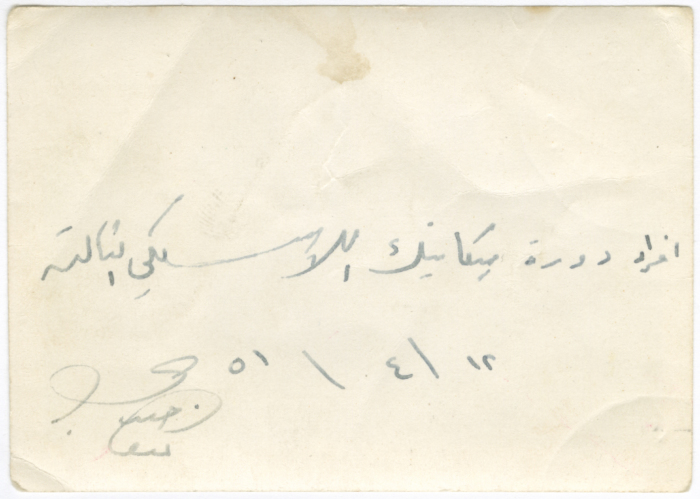 افراد دورة ميكانيك اللاسلكي الثالثة
١٢ / ٤ \ ٥١